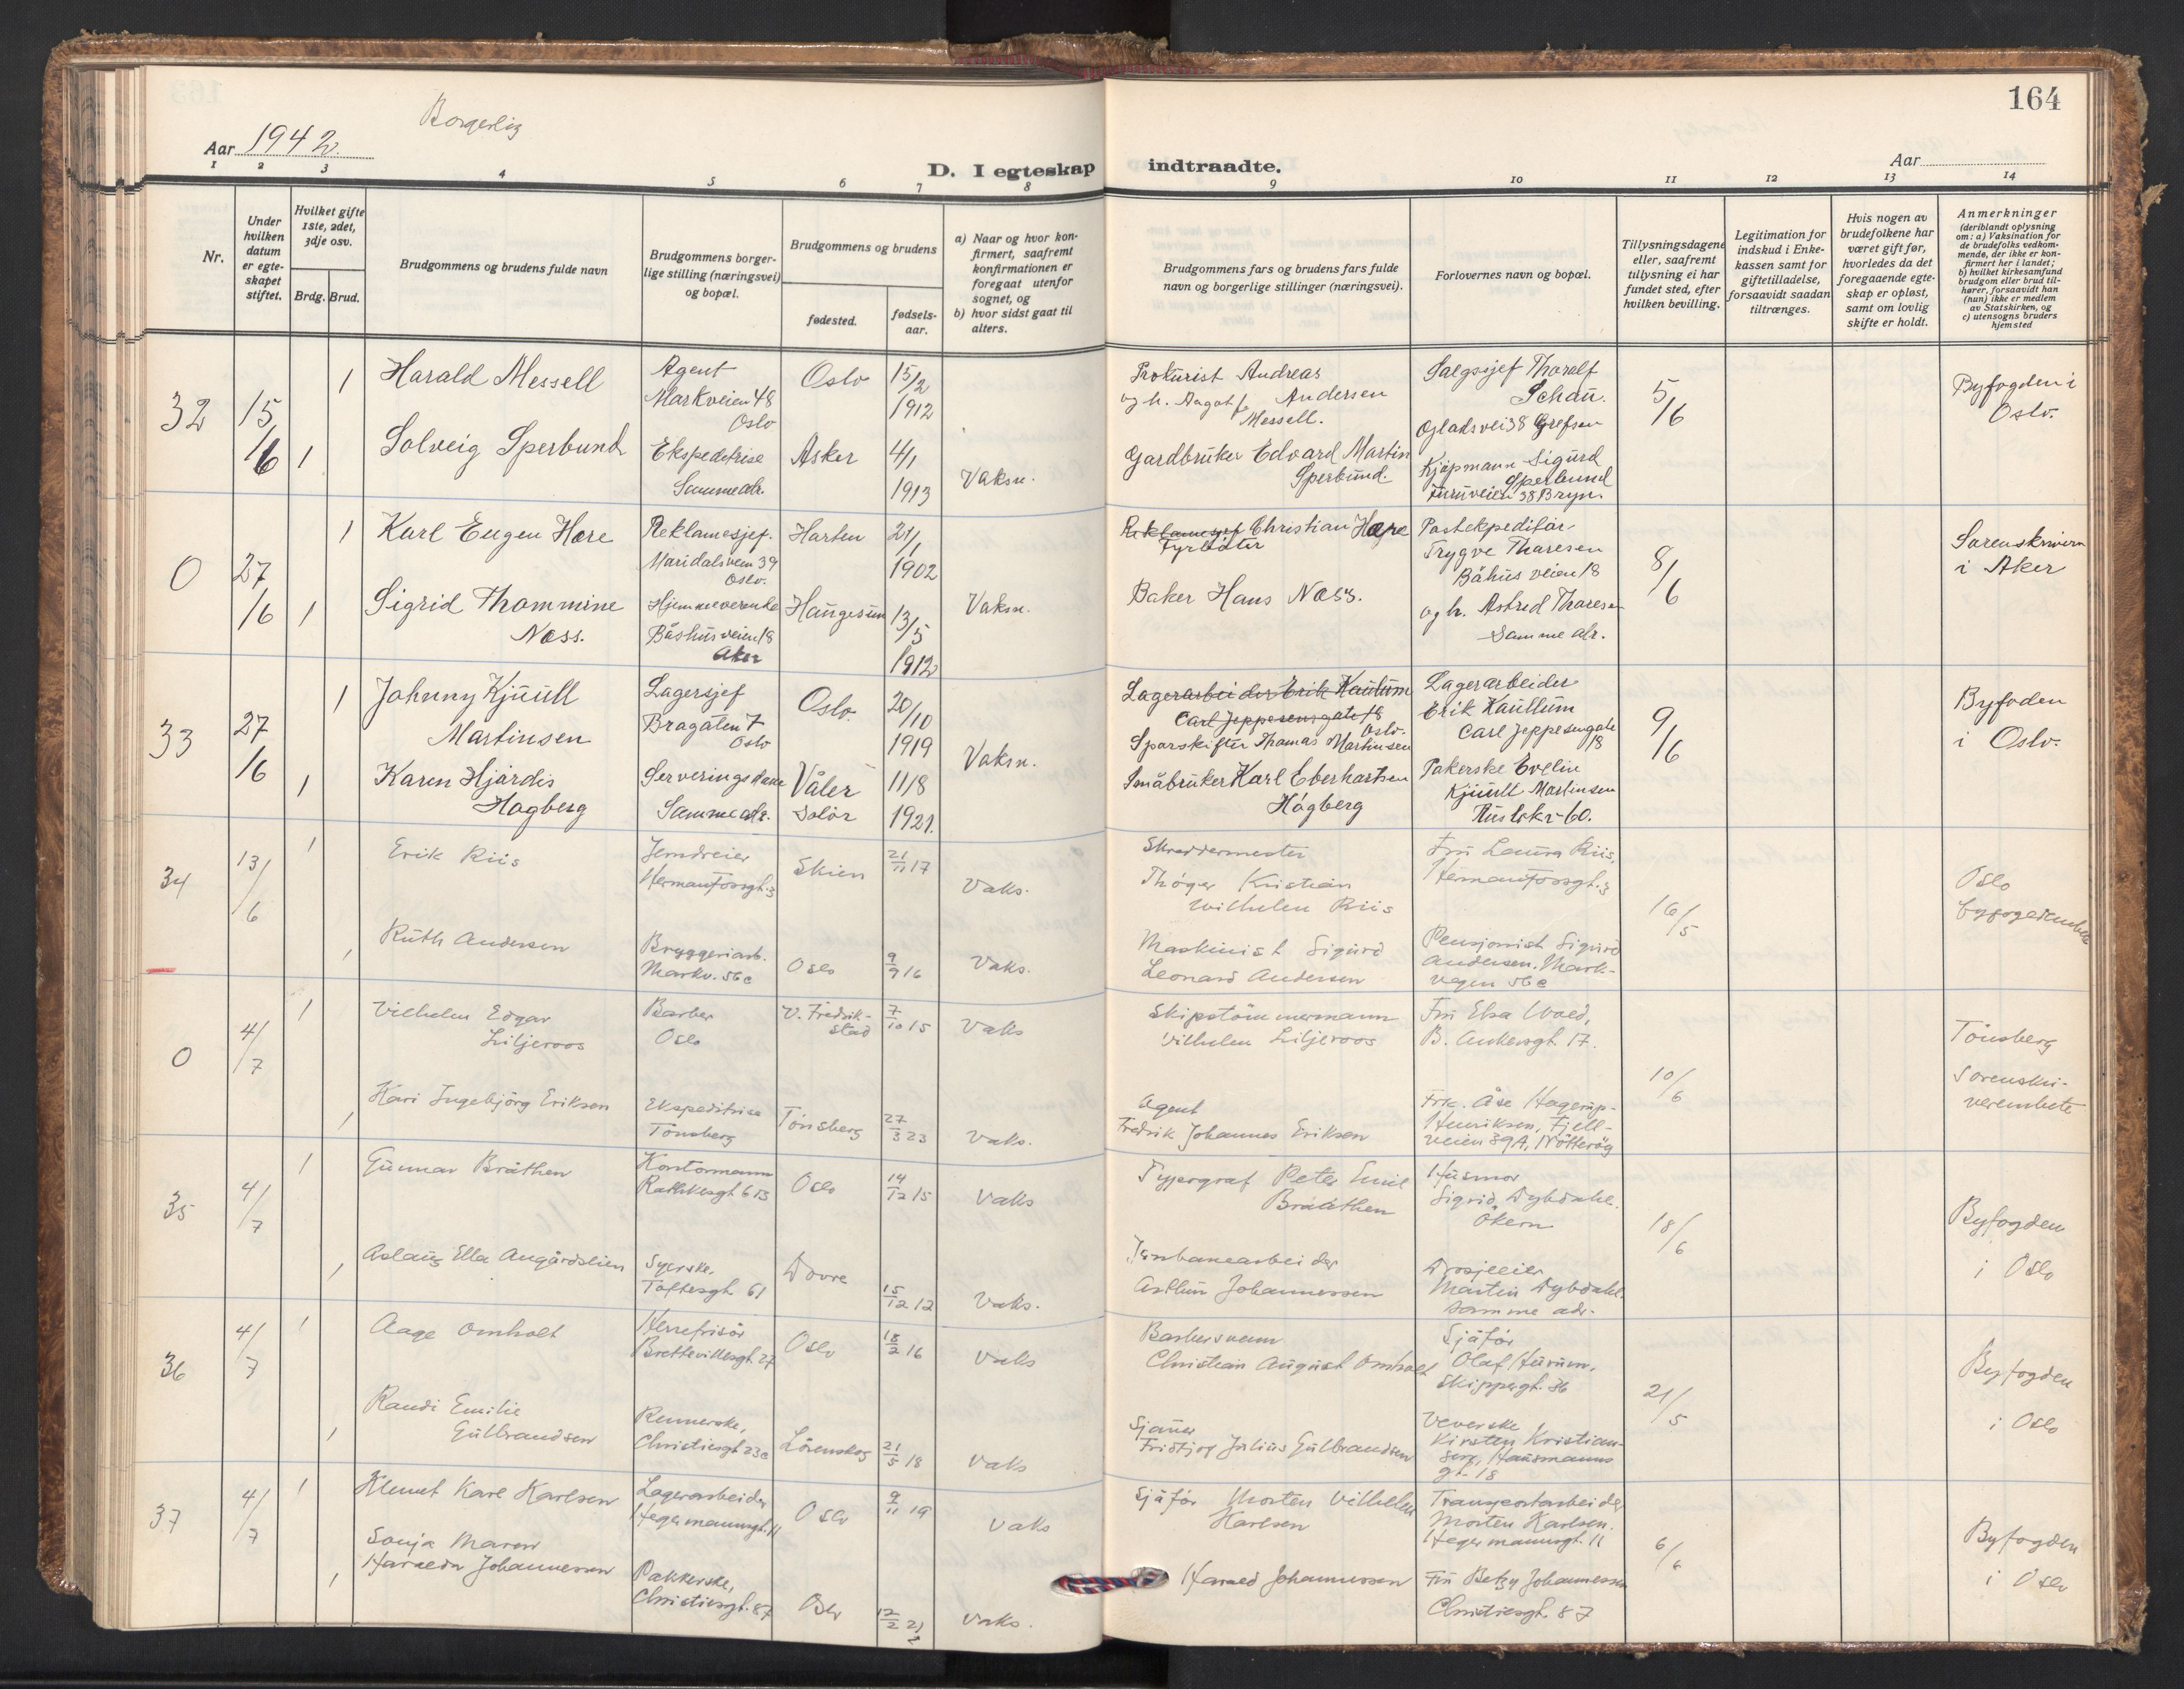 164
Borgerlig
Aar 1942.
D. I egteskap indtraadte.
Aar
1 2 3 4 5 6 7 8 9 10 11 12 13 14
Nr.
Under hvilken datum er egteskapet stiftet.
Hvilket gifte 1ste, 2det, 3dje osv.
Brdg. Brud.
Brudgommens og brudens fulde navn
Brudgommens borgerlige stilling (næringsvei) og bopæl.
Brudgommens og brudens
fødested.
fødselsaar.
a) Naar og hvor konfirmert, saafremt konfirmationen er foregaat utenfor sognet, og
b) hvor sidst gaat til alters.
Brudgommens fars og brudens fars fulde navn og borgerlige stillinger (næringsvei).
Forlovernes navn og bopæl.
Tillysningsdagene eller, saafremt tillysning ei har fundet sted, efter hvilken bevilling.
Legitimation for indskud i Enkekassen samt for giftetilladelse, forsaavidt saadan tiltrænges.
Hvis nogen av brudefolkene har været gift før, hvorledes da det foregaaende egteskap er opløst, samt om lovlig skifte er holdt.
Anmerkninger (deriblandt oplysning om: a) Vaksination for de brudefolks vedkommende, der ikke er konfirmert her i landet; b) hvilket kirkesamfund brudgom eller brud tilhører, forsaavidt han (hun) ikke er medlem av Statskirken, og c) utensogns bruders hjemsted
32 15/6 1 Harald Messell
Agent Markveien 48 Oslo
Oslo 15/2 1912
Prokurist Andreas Andersen
og h. Aagot f. Messell.
Salgsjef Thoralf Schau.
Ogladsvei 38 Grefsen
5/6
Byfogden i Oslo.
1 Solveig Sperbund
Ekspeditrise Samme adr.
Asker 4/1 1913 Vaksn.
Gardbruker Edvard Martin Sperbund.
Kjøpmann Sigurd Sperbund
Furuveien 38 Bryn.
0 27/6 1 Karl Eugen Hore
Reklamesjef. Maridalsveien 39 Oslo.
21/1 1902
Reklamesjef Christian Hope
Fyrbøter
Postekspeditør Trygve Tharesen
Båhus veien 18
8/6
Sorenskriveren i Aker
1 Sigrid Thommine Næss.
Hjemmeværende Båshusveien 18 Aker
Haugesun 13/5 1912 Vaksn.
Baker Hans Næss.
og h. Astrid Tharesen
Samme adr.
33 27/6 1 Johnny Kjuull Martinsen
Lagersjef Bragaten 7 Oslo
Oslo. 20/10 1919
Lagerarbeider Erik Kaullum
Carl Jeppesensgate 18 Oslo.
Sporskifter Thomas Martinsen
Lagerarbeider Erik Kaullum
Carl Jeppesengate 18
9/6
Byfoden i Oslo.
1 Karen Hjørdis Hagberg
Serveringsdame Samme adr.
Våler Solør 11/8 1921. Vaksn.
Småbruker Karl Eberhartsen Hågberg
Pakerske Evelin Kjuull Martinsen
60.
34 13/6 1 Erik Riis
Jerndreier Herman Fossgt. 3
Skien 21/11 17 Vaks.
Skreddermester Thøger Kristian Wilhelm Riis
Fru Laura Riis, Herman Fossgt. 3
16/5
Oslo byfogdembete
1 Ruth Andersen
Bryggeriarb. Markv. 56 c
Oslo 9/9 16 Vaks.
Maskinist Sigurd Leonard Andersen
Pensjonist Sigurd Andersen. Markvegen 56 c
0 4/7 1 Vilhelm Edgar Liljeroos
Barber Oslo
V. Fredrikstad 7/10 15 Vaks
Skipstømmermann Vilhelm Liljeroos
Fru Elsa Wold, B. Ankersgt. 17.
10/6
Tönsberg sorenskriverembete
1 Kari Ingebjörg Eriksen
Ekspeditrise Tönsberg
Tönsberg 27/3 23 Vaks.
Agent Fredrik Johannes Eriksen
Frk. Åse Hagerup-Henriksen, Fjellveien 39A, Nötteröy
35 4/7 1 Gunnar Bråthen
Kontormann Rathkesgt 6 B
Oslo 14/12 15 Vaks
Typograf Peter Emil Brååthen
Husmor Sigrid Dybdahl. Ökern
18/6
Byfogden i Oslo
1 Aslaug Ella Angårdslien
Syerske, Toftesgt. 61
Dovre 15/12 12 Vaks.
Jernbanearbeider Arthur Johannessen
Drosjeeier Martin Dybdahl. samme adr.
36 4/7 1 Aage Omholt
Herrefrisör Brettevillesgt. 27
Oslo 18/2 16 Vaks
Barbersvenn Christian August Omholt
Sjåfør Olaf Hurum, Skippergt. 36
21/5
Byfogden i Oslo
1 Randi Emilie Gulbrandsen
Rennerske, Christiesgt. 23c
Lörenskog 21/5 18 Vaks
Sjauer Fridtjof Julius Gulbrandsen
Veverske Kirsten Kristiansen, Hausmanns gt. 18
37 4/7 1 Klemet Karl Karlsen
Lagerarbeider Hegermannsgt. 11
Oslo 9/11 19 Vaks
Sjåfør Morten Vilhelm Karlsen
Transportarbeider Morten Karlsen. Hegermannsgt. 11
6/6
Byfogden i Oslo
1 Sonja Maron Haralda Johannessen
Pakkerske, Christiesgt. 87
Oslo 12/2 21 Vaks.
Harald Johannessen
Fru Betzy Johannessen
Christiesgt. 87